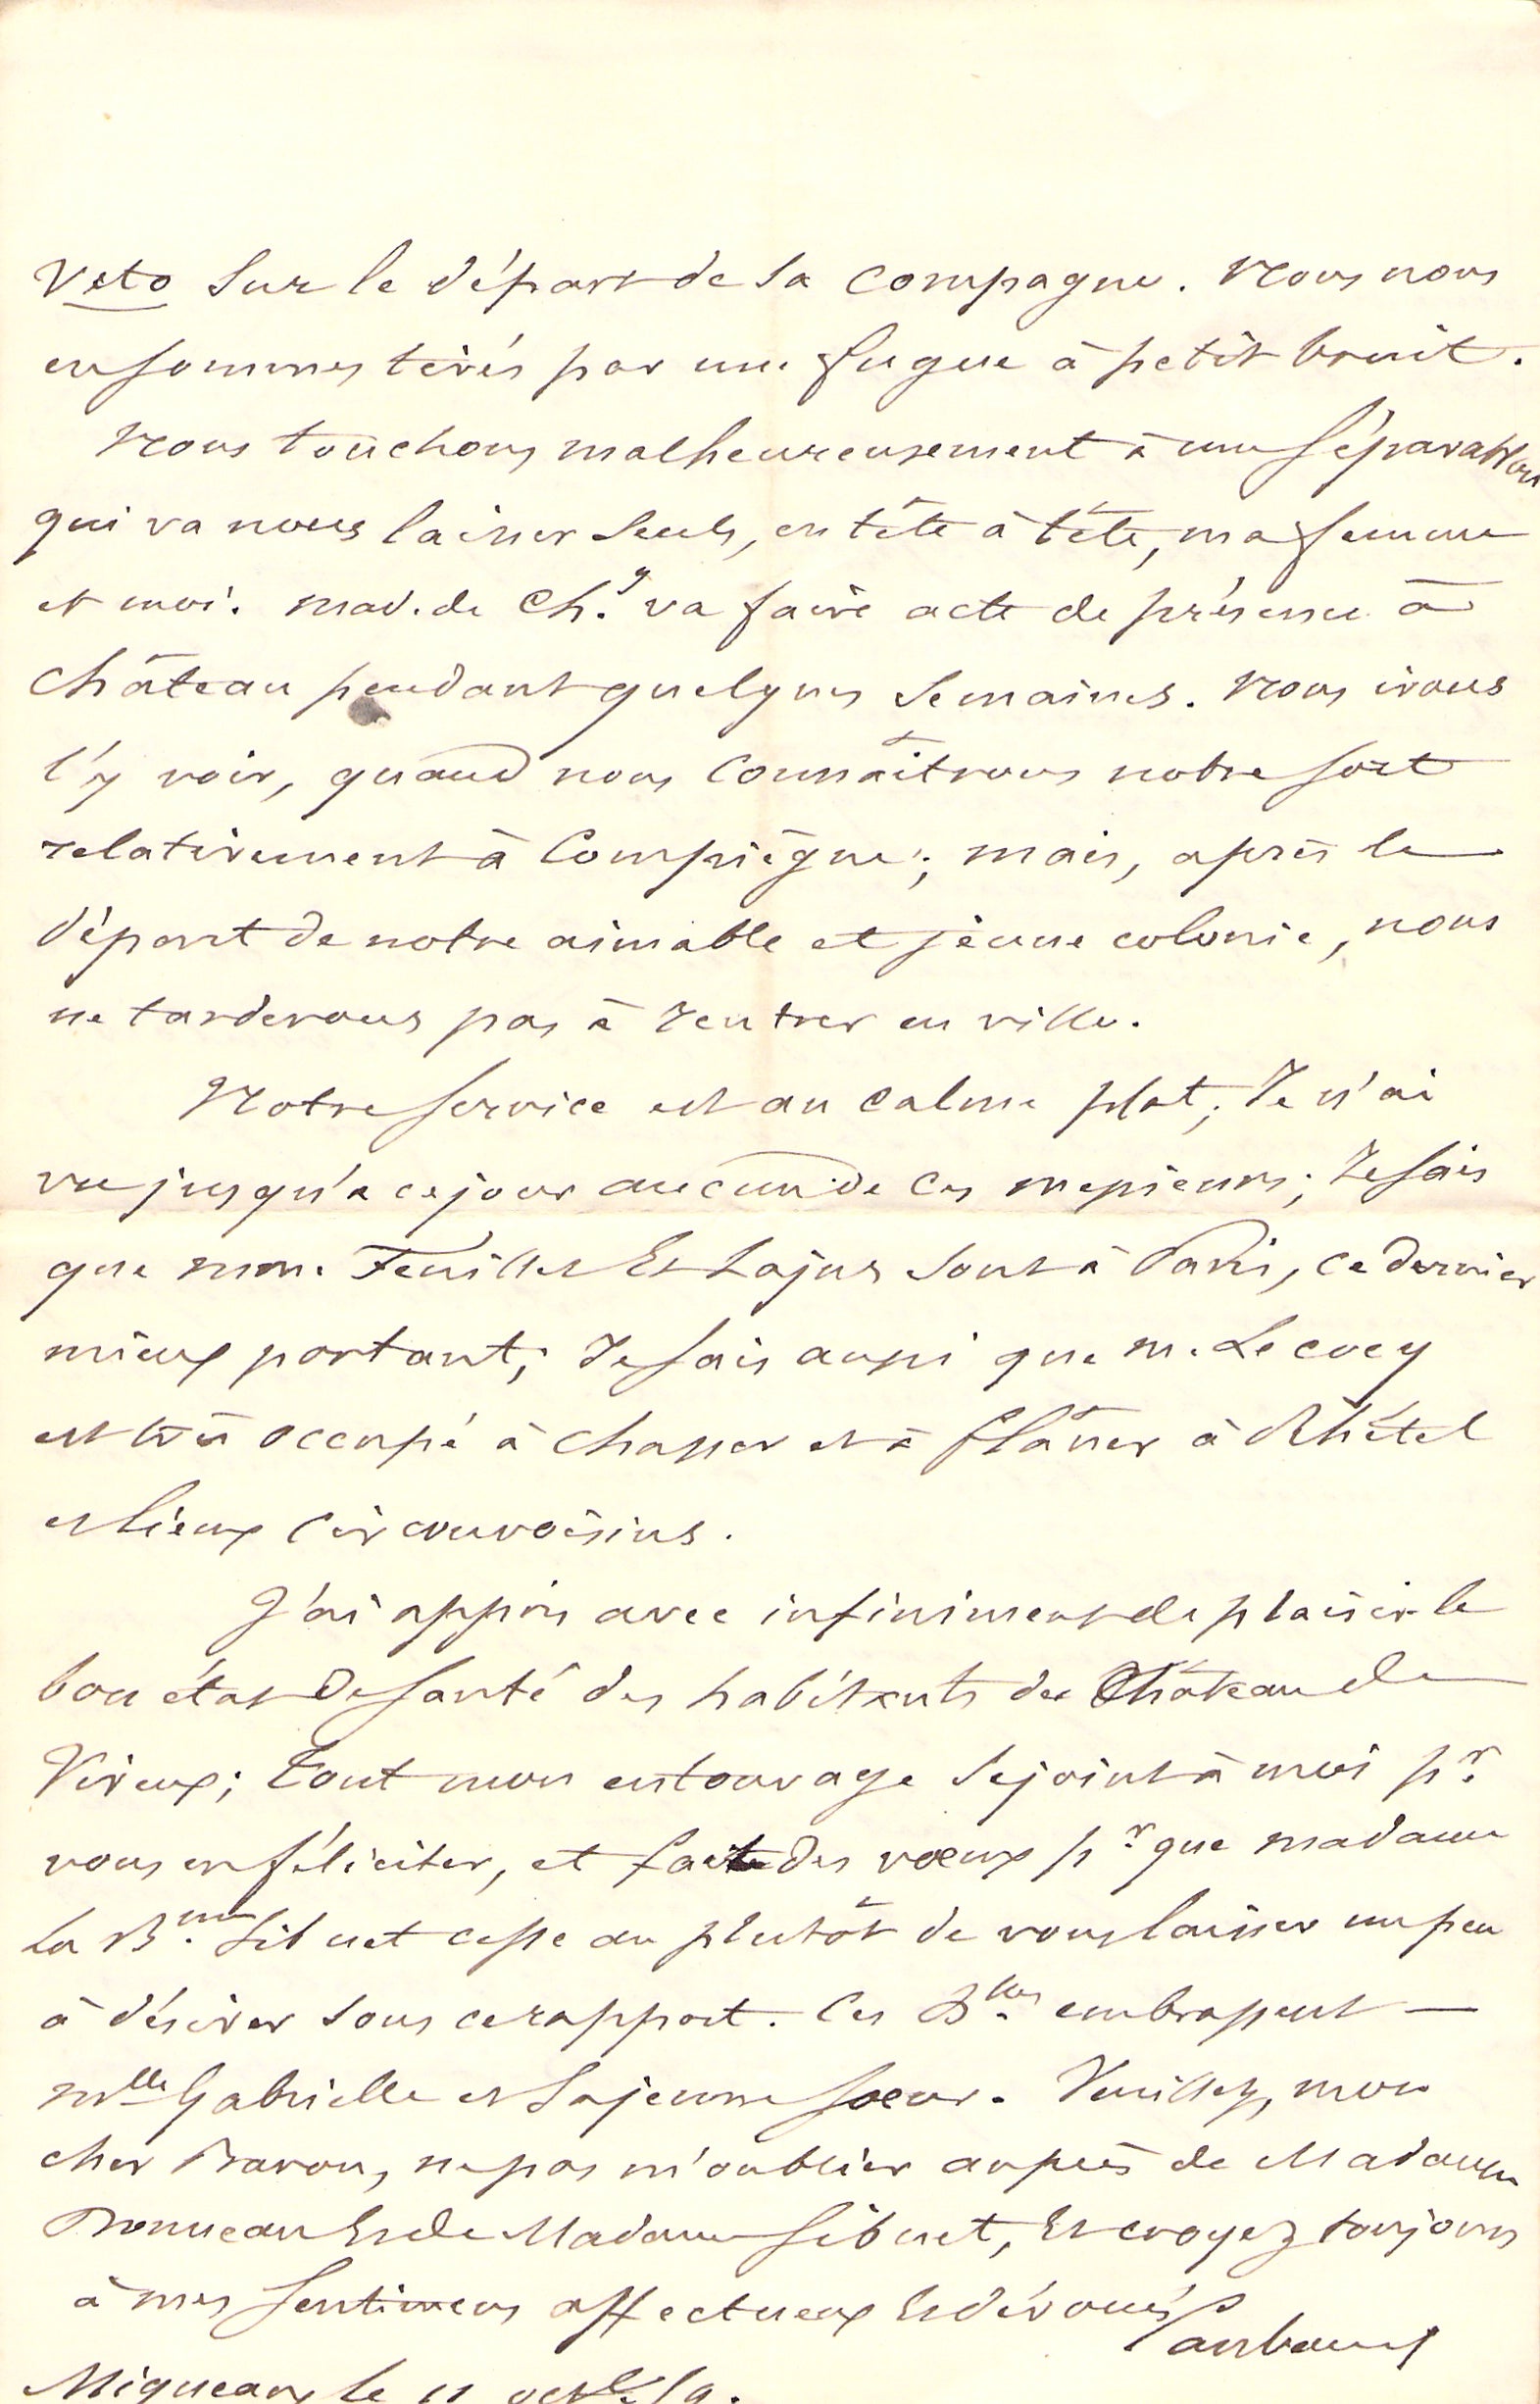 Veto sur le départ de sa compagne. Nous nous
en sommes tirés par une fugue à petit bruit.
Nous touchons malheureusement à une séparation
qui va nous laisser seuls, en tête à tête, ma femme
et moi. Mad. de Ch.y va faire acte de présence à
château pendant quelques semaines. Nous irons
l'y voir, quand nous connaîtrons notre sort
relativement à Compiègne; mais, après le
départ de notre aimable et jeune colonie, nous
ne tarderons pas à rentrer en ville.
Notre service est au calme plat; Je n'ai
vu jusqu'à ce jour aucun de ces messieurs; Je sais
que mm. Feuillet Et Lajus sont à Paris, ce dernier
mieux portant; Je sais aussi que m. Lecocq
est très occupé à chasser et à flâner à Rhétel
et lieux circonvoisins.
J'ai appris avec infiniment de plaisir le
bon état de santé des habitants du Château de
Vireux; tout mon entourage se joint à moi pr.
vous en féliciter, et fait des vœux pr. que madame
la Bnne. Sibuet cesse au plutôt de vous laisser un peu
à désirer sous ce rapport. Ces Dlles embrassent —
Mlle Gabrielle et sa jeune sœur. Veuillez, mon
cher Baron, ne pas m'oublier auprès de Madame
Bonneau Et de Madame Sibuet, Et croyez toujours
à mes sentimens affectueux Et dévoués
le 11 oct